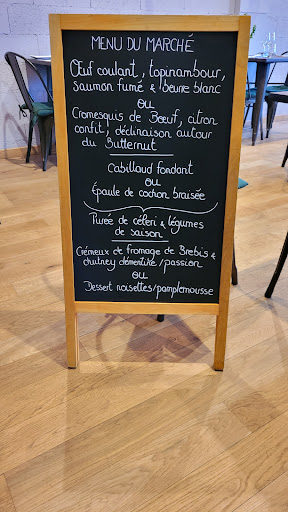 MENU DU MARCHÉ
Œuf coulant, topinambour,
saumon fumé & beurre blanc
ou
Cromesquis de Bœuf, citron
confit, déclinaison autour
du Butternut
Cabillaud fondant
ou
Épaule de cochon braisée
Purée de céleri & légumes
de saison
Crémeux de fromage de Brebis &
chutney clémentine/passion
ou
Dessert noisettes/pamplemousse